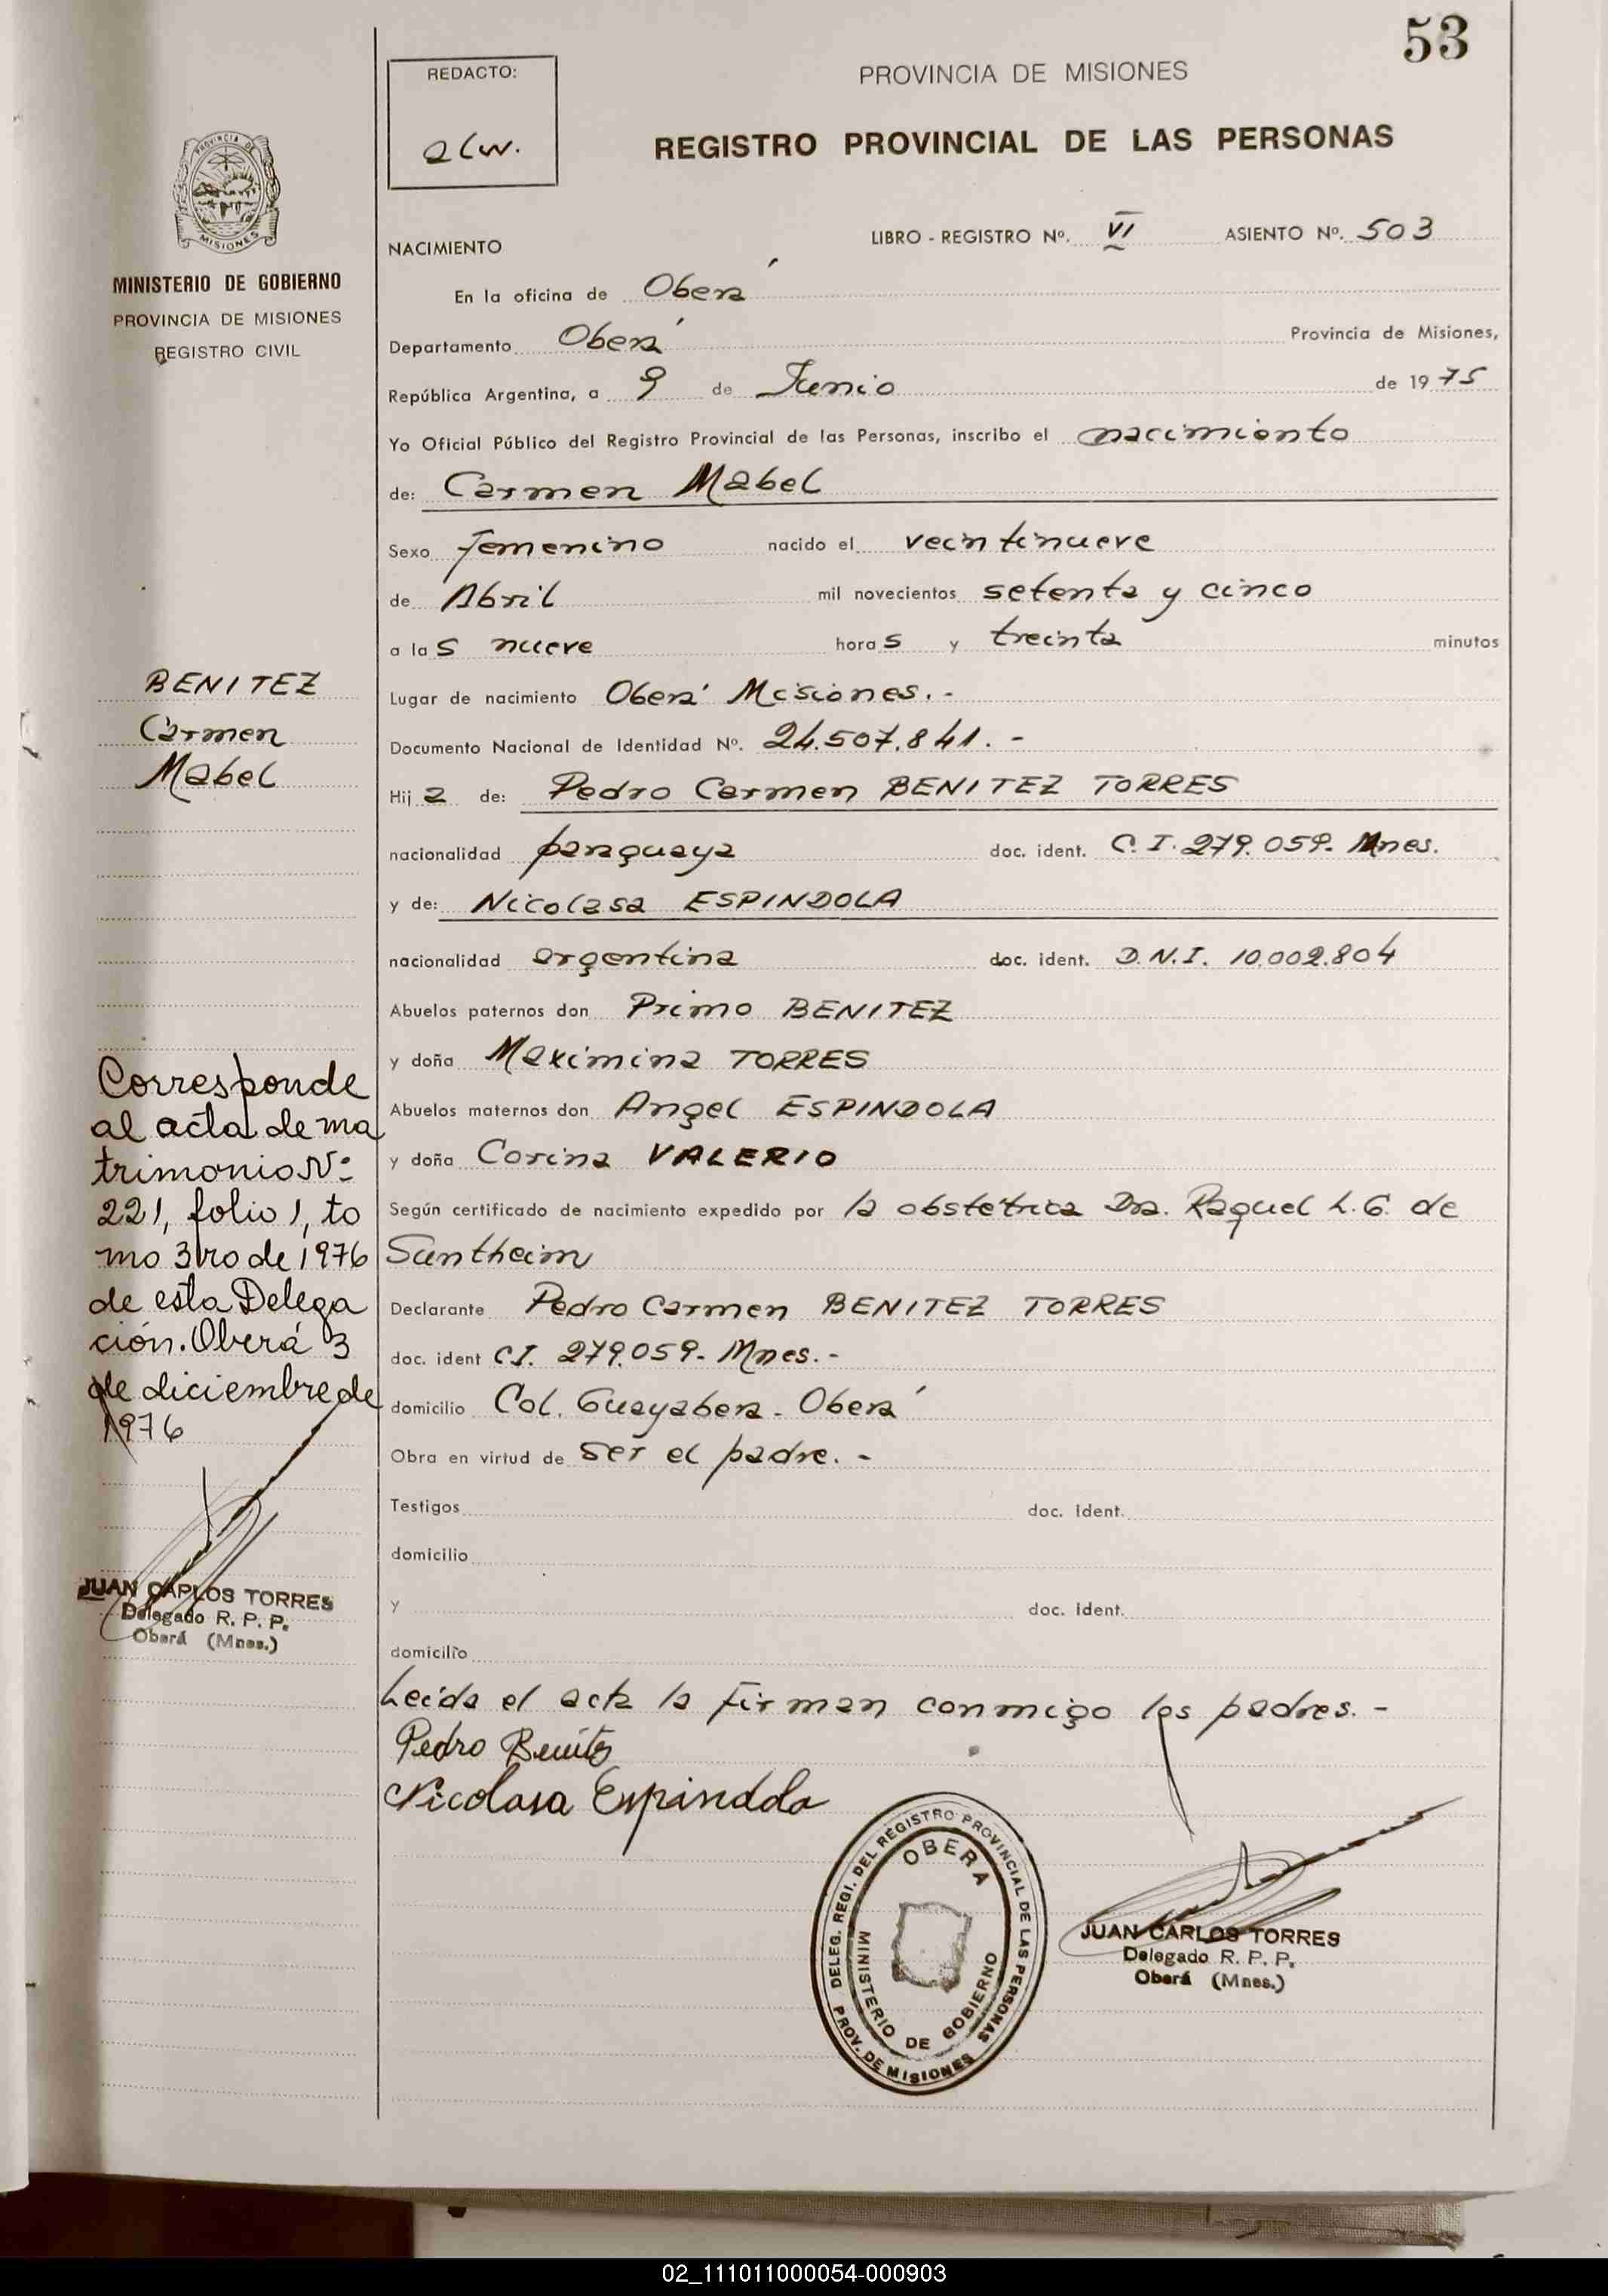 53
REDACTO:
alw.
PROVINCIA DE MISIONES
REGISTRO PROVINCIAL DE LAS PERSONAS
PROVINCIA DE
MISIONES
MINISTERIO DE GOBIERNO
PROVINCIA DE MISIONES
REGISTRO CIVIL
NACIMIENTO
LIBRO - REGISTRO Nº. VI ASIENTO Nº. 503
En la oficina de Oberá
Departamento Oberá Provincia de Misiones,
República Argentina, a 9 de Junio de 1975
Yo Oficial Público del Registro Provincial de las Personas, inscribo el nacimiento
de: Carmen Mabel
Sexo femenino nacido el veintinueve
de Abril mil novecientos setenta y cinco
a las nueve horas y treinta minutos
Lugar de nacimiento Oberá Misiones.-
Documento Nacional de Identidad Nº. 24.507.841.-
Hija de: Pedro Carmen BENITEZ TORRES
nacionalidad paraguaya doc. ident. C.I. 279.059- Mnes.
y de: Nicolasa ESPINDOLA
nacionalidad argentina doc. ident. D.N.I. 10.002.804
Abuelos paternos don Primo BENITEZ
y doña Maximina TORRES
Abuelos maternos don Angel ESPINDOLA
y doña Corina VALERIO
Según certificado de nacimiento expedido por la obstétrica Dra. Raquel L.G. de
Suntheim
Declarante Pedro Carmen BENITEZ TORRES
doc. ident C.I. 279.059- Mnes.-
domicilio Col. Guayabera - Oberá
Obra en virtud de ser el padre.-
Testigos doc. ident.
domicilio
y doc. ident.
domicilio
Leída el acta la firman conmigo los padres.-
Pedro Benitez
Nicolasa Espindola
DELEG. REGI. DEL REGISTRO PROVINCIAL DE LAS PERSONAS
PROV. DE MISIONES
OBERA
MINISTERIO DE GOBIERNO
JUAN CARLOS TORRES
Delegado R. P. P.
Oberá (Mnes.)
BENITEZ
Carmen
Mabel
Corresponde
al acta de ma
trimonio Nº
221, folio 1, to
mo 3ro de 1976
de esta Delega
ción. Oberá 3
de diciembre de
1976
JUAN CARLOS TORRES
Delegado R. P. P.
Oberá (Mnes.)
02_111011000054-000903